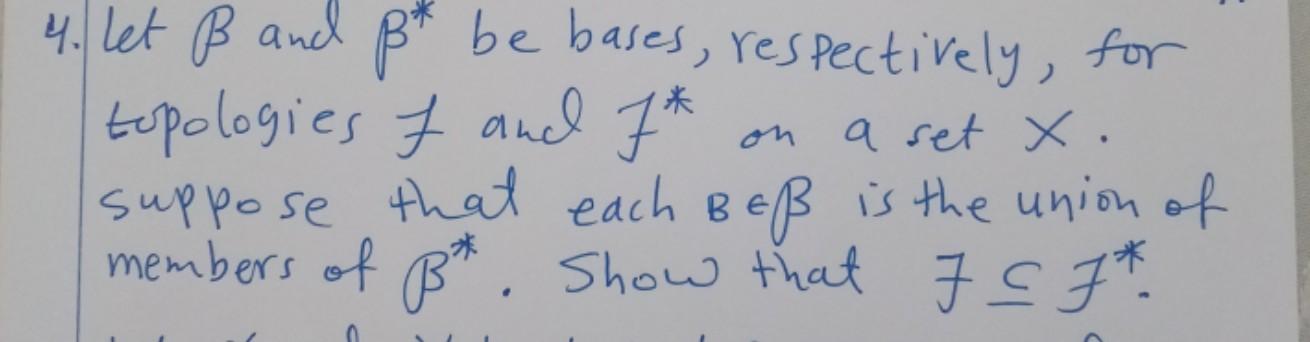 4. let β and β* be bases, respectively, for
topologies J and J* on a set X.
suppose that each B∈β is the union of
members of β*. Show that J ⊆ J*.